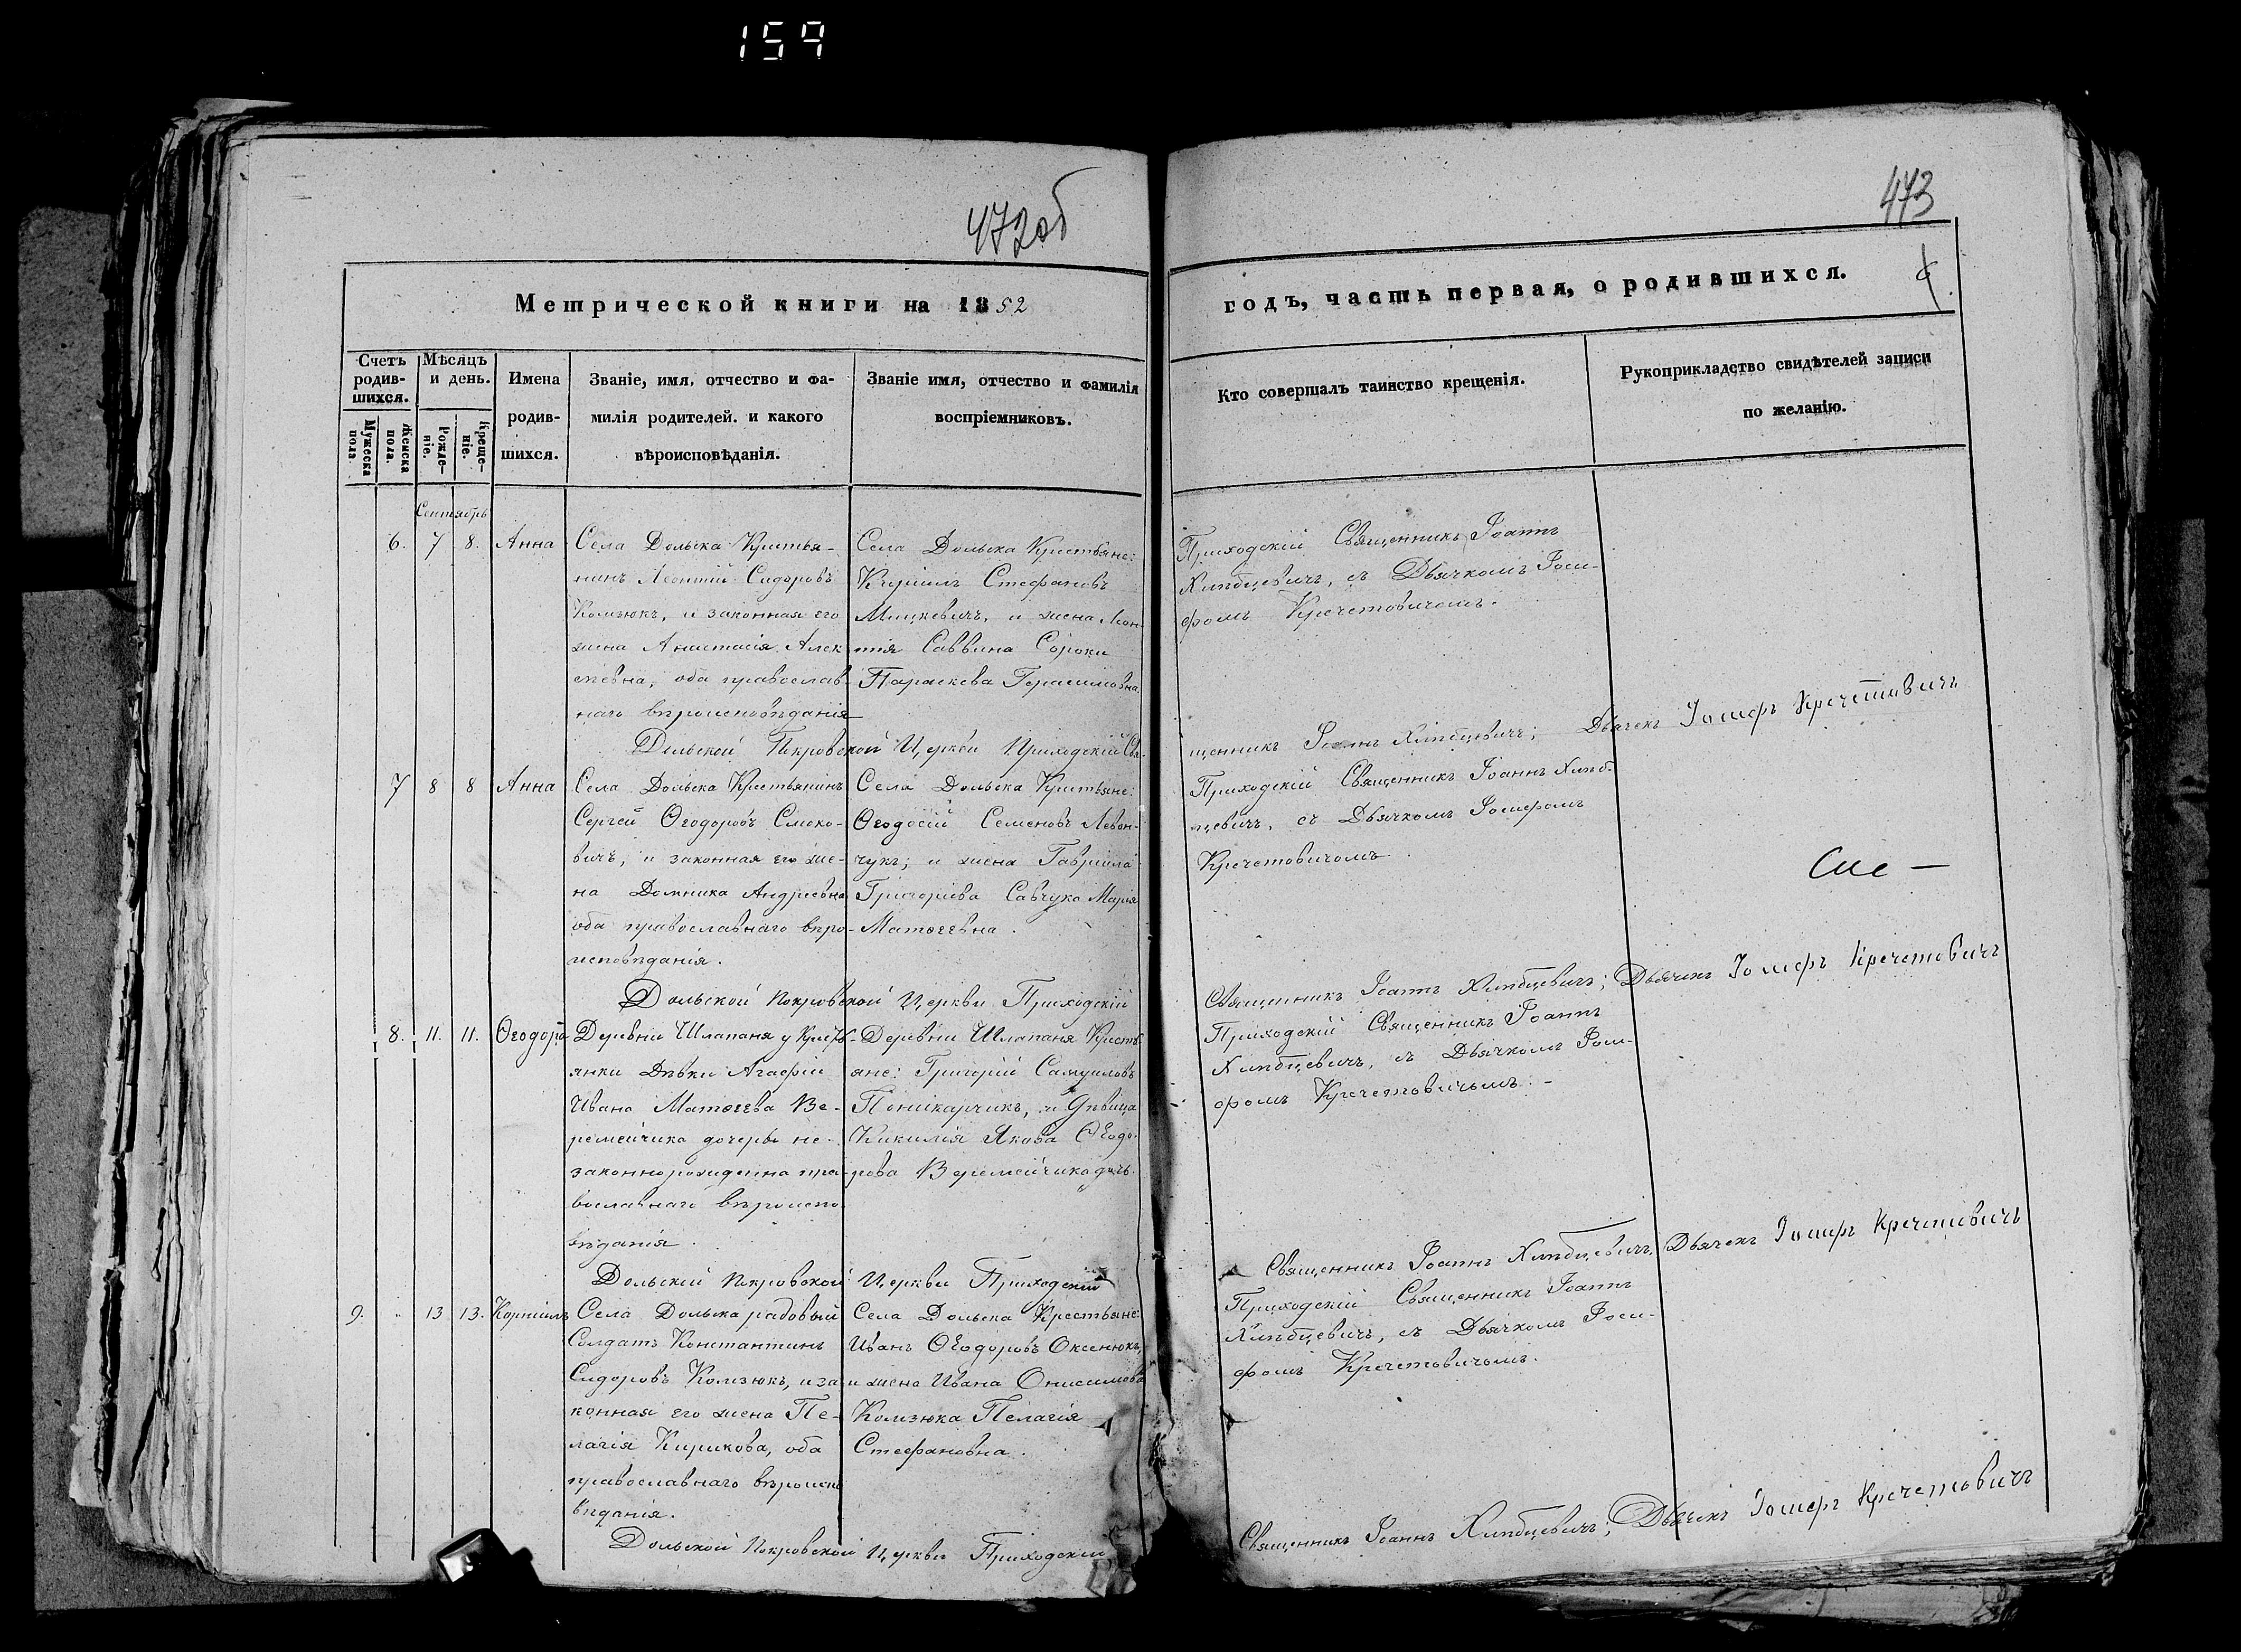 159
472об
473
Метрической книги на 1852
годъ, часть первая, о родившихся.
Счетъ родив-шихся.
Мужеска пола.
Женска пола.
Мѣсяцъ и день.
Рожде-ніе.
Креще-ніе.
Имена
родив-
шихся.
Званіе, имя, отчество и фа-
милія родителей. и какого
вѣроисповѣданія.
Званіе имя, отчество и фамилія
воспріемниковъ.
Кто совершалъ таинство крещенія.
Рукоприкладство свидѣтелей записи
по желанію.
Сентябрь
6. 7 8. Анна
Села Дольска Крестья-
нинъ Леонтій Сидоровъ
Комзюкъ, и законная его
жена Анастасія Алек
сѣевна, оба православ-
наго вѣроисповѣданія
Села Дольска Крестьяне:
Кирилъ Стефановъ
Мицкевичъ, и жена Леон
тія Саввина Сороки
Параскева Герасимовна
Приходскій Священникъ Іоаннъ
Хлѣбцевичъ, съ Дьячкомъ Іоси-
фомъ Кречетовичомъ.
Дольской Покровской Церкви Приходскій Свя-
щенникъ Іоаннъ Хлѣбцевичъ; Дьячекъ Іосифъ Кречетовичъ
7 8 8 Анна
Села Дольска Крестьянинъ
Сергей Ѳеодоровъ Смоко-
вичъ, и законная его же-
на Домника Андреевна
оба православнаго вѣро-
исповѣданія.
Села Дольска Крестьяне:
Ѳеодосій Семеновъ Левон-
чукъ; и жена Гавріила
Григоріева Савчука Марія
Матѳеевна.
Приходскій Священникъ Іоаннъ Хлѣб-
цевичъ, съ Дьячкомъ Іосифомъ
Кречетовичомъ.
Дольской Покровской Церкви Приходскій
Священникъ Іоаннъ Хлѣбцевичъ; Дьячекъ Іосифъ Кречетовичъ
8. 11. 11. Ѳеодора
Деревни Шлапаня у Кресть-
янки Дѣвки Агафіи
Ивана Матѳеева Ве-
ремейчика дочеры не-
законнорожденна пра-
вославнаго вѣроиспо
вѣданія.
Деревни Шлапаня Кресть
яне: Григорій Самуиловъ
Поникарчикъ, и Дѣвица
Кикилія Якова Ѳеодо-
рова Веремейчика дочь.
Приходскій Священникъ Іоаннъ
Хлѣбцевичъ, съ Дьячкомъ Іоси-
фомъ Кречетовичомъ.
Дольскій Покровской Церкви Приходскій
Священникъ Іоаннъ Хлѣбцевичъ, Дьячекъ Іосифъ Кречетовичъ
9. 13 13. Корнилъ
Села Дольска радовый
Солдатъ Константинъ
Сидоровъ Комзюкъ, и за
конная его жена Пе-
лагія Кирикова, оба
православнаго вѣроиспо
вѣданія.
Села Дольска Крестьяне:
Иванъ Ѳеодоровъ Оксенюкъ,
и жена Ивана Онисимова
Комзюка Пелагія
Стефановна.
Приходскій Священникъ Іоаннъ
Хлѣбцевичъ, съ Дьячкомъ Іоси-
фомъ Кречетовичомъ.
Дольской Покровской Церкви Приходскій
Священникъ Іоаннъ Хлѣбцевичъ; Дьячекъ Іосифъ Кречетовичъ